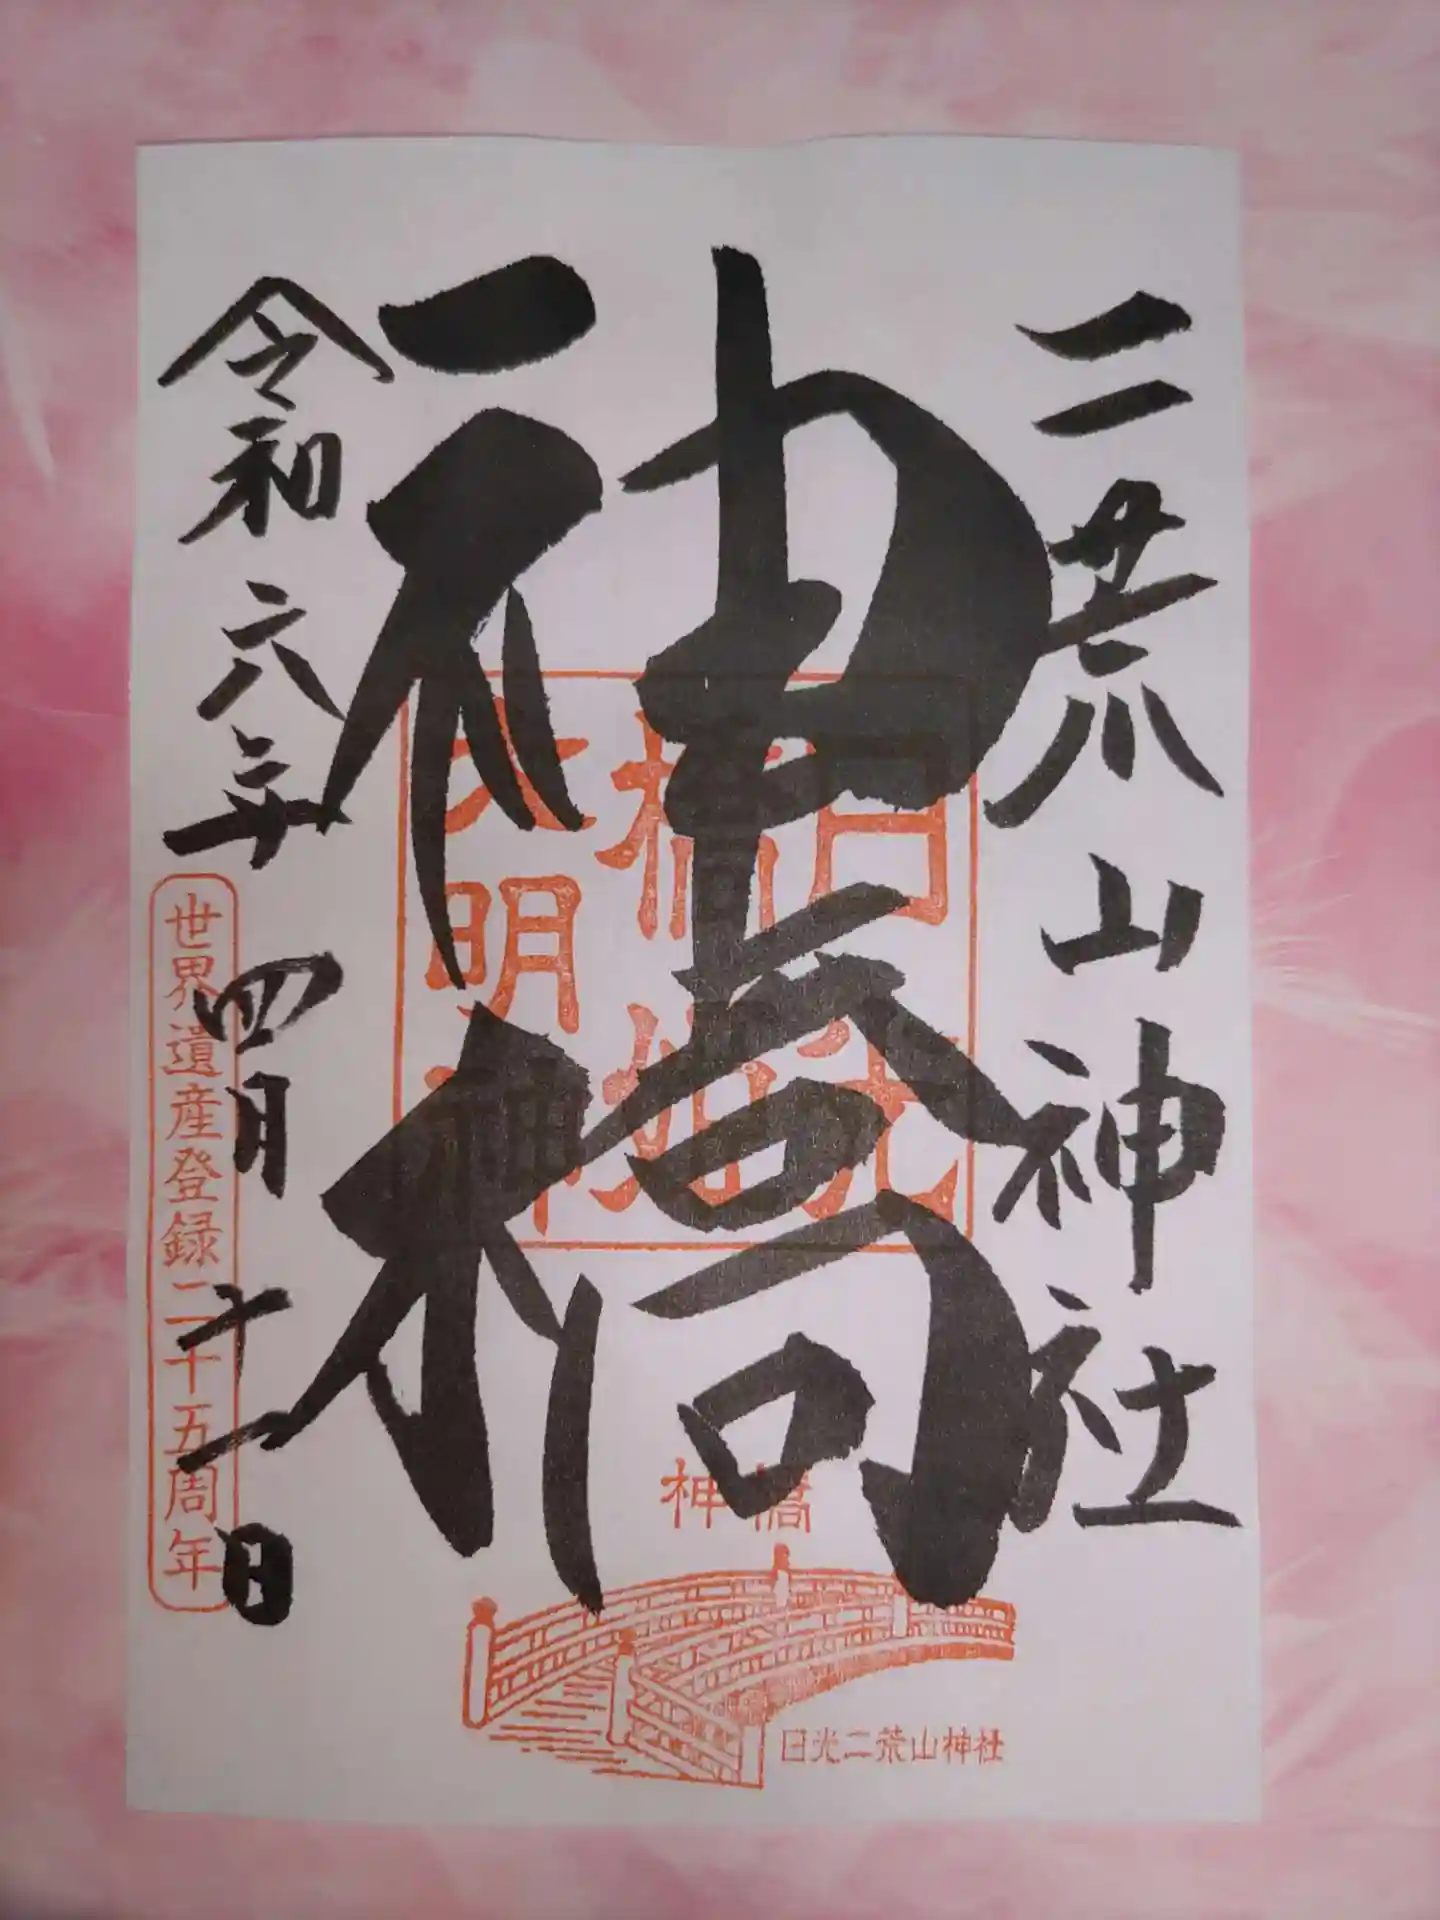 二荒山神社
神橋
日光
橋姫
大明神
神橋
日光二荒山神社
令和六年四月十一日
世界遺産登録二十五周年